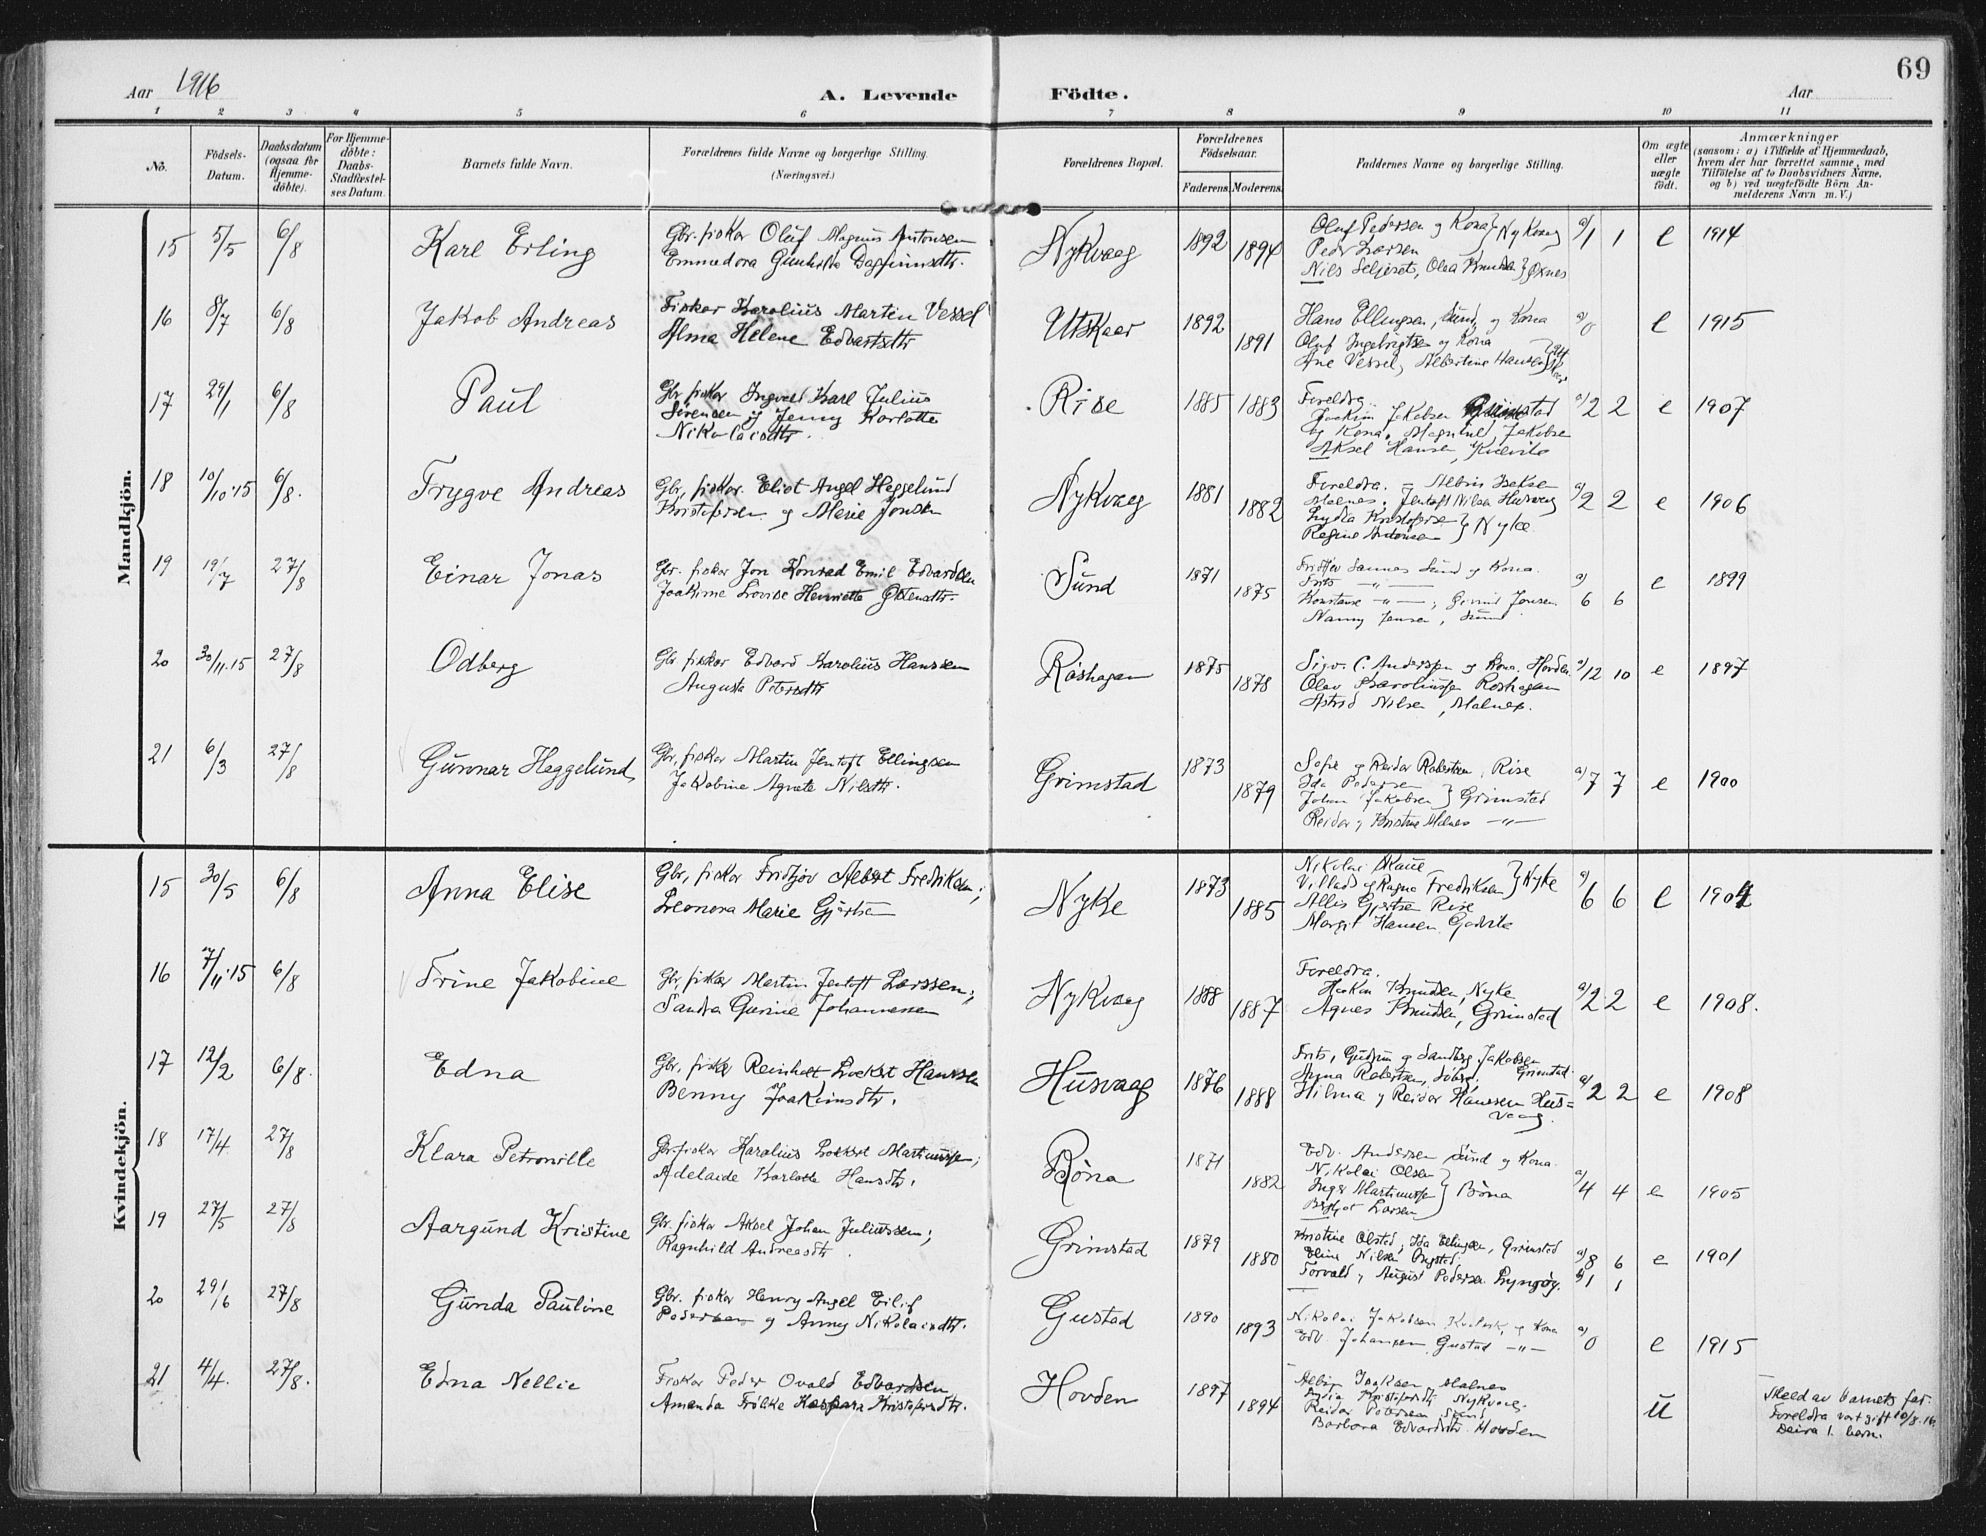 69
Aar 1916 A. Levende Födte. Aar
1 2 3 4 5 6 7 8 9 10 11
No.
Födsels-
Datum.
Daabsdatum
(ogsaa for
Hjemme-
döbte).
For Hjemme-
döbte:
Daabs-
Stadfæstel-
ses Datum.
Barnets fulde Navn.
Forældrenes fulde Navne og borgerlige Stilling.
(Næringsvei.)
Forældrenes Bopæl.
Forældrenes
Födselsaar.
Faderens. Moderens.
Faddernes Navne og borgerlige Stilling.
Om ægte
eller
uægte
födt.
Anmærkninger
(saasom: a) i Tilfælde af Hjemmedaab,
hvem der har forrettet samme, med
Tilföielse af to Daabsvidners Navne,
og b) ved uægtefödte Börn An-
melderens Navn m. V.)
Mandkjön.
15 5/5 6/8 Karl Erling
Gbr. fisker Oluf Magnus Antonsen
Emmedora Gunhilda Dagfinnsdtr.
Nykvaag 1892 1894
Oluf Pedersen og Kona } Nykvaag
Peder Larsen
Nils Seljeset, Olea Knudsen } Öxnes
a/1 1 e 1914
16 8/7 6/8 Jakob Andreas
Fisker Karolius Martin Vessel
Alma Helene Edvartsdtr
Utskaar 1892 1891
Hans Ellingsen, Sund, og Kona
Oluf Ingebrigtsen og Kona
Ane Vessel, Albertine Hansen
a/0 e 1915
17 29/1 6/8 Paul
Gbr fisker Ingvald Karl Julius
Sörensen og Jenny Karlotte
Nikolaisdtr.
Rise 1885 1883
Foreldra.
Joakim Jakobsen Grimstad
og Kona, Magnhild Jakobsen
Aksel Hansen,
a/2 2 e 1907
18 10/10.15 6/8. Trygve Andreas
Gbr, fisker. Eliot Angel Heggelund
Kristofersen og Marie Jonsen
Nykvaag 1881 1882
Foreldra. Albin Isaksen
Malnes, Jentoft Nilsen Husvaag
Lydia Kristofersen } Nyke
Regine Antonsen
a/2 2 e 1906
19 19/7 27/8 Einar Jonas
Gbr. fisker Jon Konrad Emil Edvardsen
Joakime Lovise Henriette Östensdtr.
Sund 1871 1875
Fridtjov Sannes Sund og Kona.
Frits —"—
Konstanse —"—; Eivind Jonsen
Nanny Jensen, Sund
a) 6 6 e 1899
20 30/11.15 27/8 Odberg
Gbr fisker Edvard Karolius Hanssen
Augusta Petersdtr
Röshagan 1875 1878
Sigv. C. Anderssen og Kona. Hovden
Olav Karoliussen Roshagan
Astrid Nilsen, Malnes.
a/12 10 e 1897
21 6/3 27/8 Gunnar Heggelund
Gbr, fisker Martin Jentoft Ellingsen
Jakobine Agnete Nilsdtr.
Grimstad 1873 1879
Sofie og Reidar Robertsen, Rise
Ida Pedersen
Johan Jakobsen } Grimstad
Reidar og Kristine Malnes —"—
a/7 7 e 1900
Kvindekjön.
15 30/5 6/8 Anna Elise
Gbr, fisker Fridtjov Albert Fredriksen;
Leonora Marie Gjertsen
Nyke 1873 1885
Nikolai Skaue
Villads og Ragna Fredriksen } Nyke
Allis Gjertsen Rise
Margit Hansen
a/6 6 e 1904
16 7/11.15 6/8 Trine Jakobine
Gbr, fisker Martin Jentoft Larssen;
Sandra Gurine Johannessen
Nykvaag 1888 1887
Foreldra.
Haakon Knudsen, Nyke
Agnes Knudsen, Grimstad
a/2 2 e 1908.
17 12/2 6/8. Edna
Gbr, fisker Reinholt Lockert Hanssen
Benny Joakimsdtr.
Husvaag 1876 1888
Frits, Gudrun og Sandberg Jakobsen
Grimstad
Anna Robertsen,
Hilma og Reidar Hanssen Hus=
vaag.
a/2 2 e 1908
18 17/4 27/8 Klara Petronille
Gbr. fisker Karolius Lockert Martinussen;
Adelaide Karlotte Hansdtr.
Böna 1871 1882
Edv. Andersen Sund og Kona.
Nikolai Olsen
Inger Martinussen } Böna
Birger Larsen
a/4 4 e 1905
19 27/5 27/8 Aargund Kristine
Gbr. fisker Aksel Johan Juliussen;
Ragnhild Andreasdtr.
Grimstad 1879 1880
Kristine Olsted, Ida Ellingsen, Grimstad
Eline Nilsen
Torvald og August Pedersen
a/8 6 e 1901
b/1 1
20 29/6 27/8 Gunda Pauline
Gbr. fisker Henry Angel Eilif
Pedersen og Anny Nikolaisdtr.
Gustad 1890 1893
Nikolai Jakobsen og Kona
Edv. Johansen, Gustad —"—
a/0 e 1915
21 4/4. 27/8. Edna Nellie
Fisker Peder Ovald Edvardsen
Amanda Frölke Kaspara Kristofersdtr.
Hovden 1897 1894
Albin Isaksen Malnes
Lydia Kristofersdtr Nykvaag.
Reidar Petersen Sund
Barbara Edvardsdtr. Hovden
u
Meld av barnets far.
Foreldra vart gift 10/8.16.
Deira 1. barn.